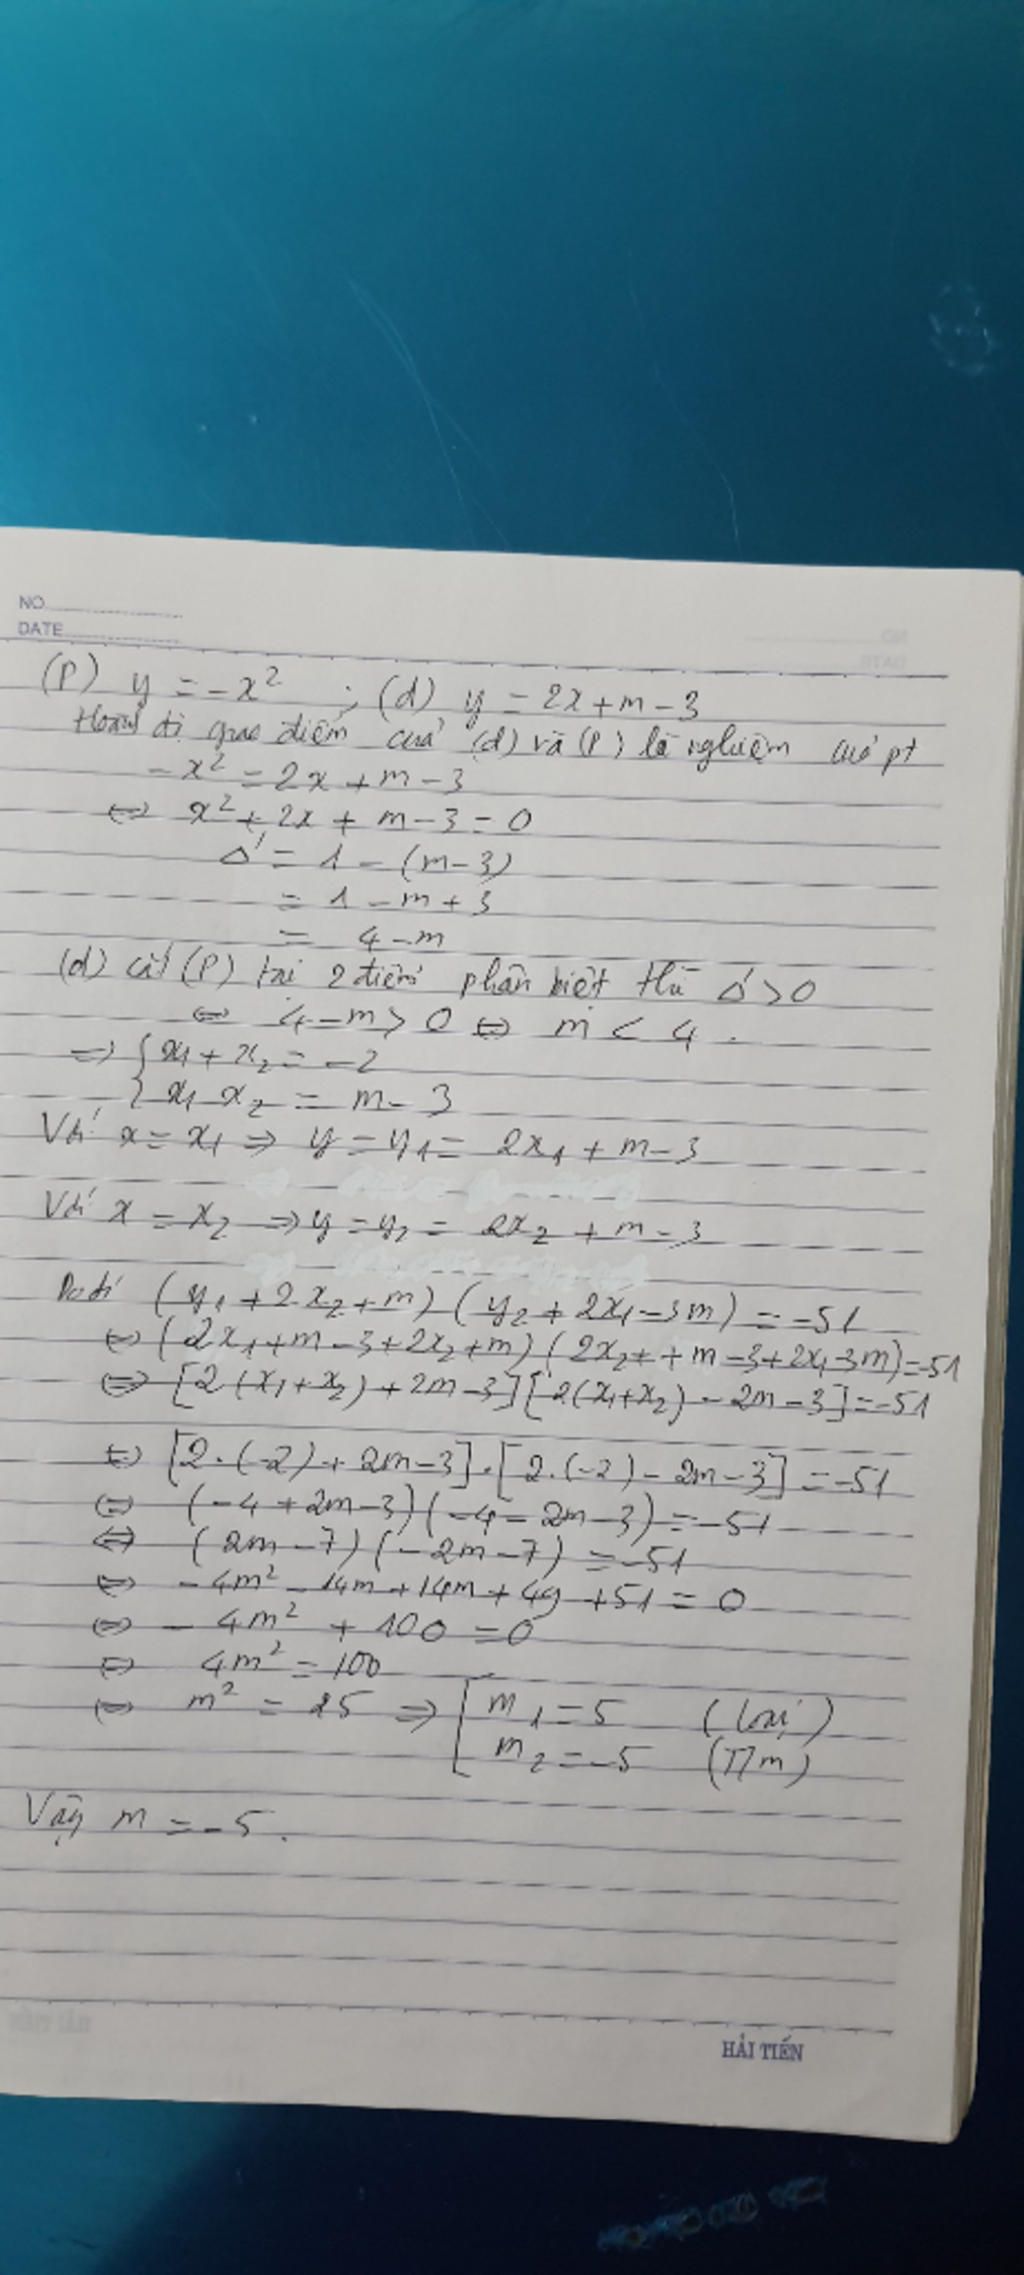 NO
DATE
(P) y = -x² ; (d) y = 2x + m - 3
Hoành độ giao điểm của (d) và (P) là nghiệm của pt
-x² = 2x + m - 3
⇔ x² + 2x + m - 3 = 0
Δ' = 1 - (m - 3)
= 1 - m + 3
= 4 - m
(d) cắt (P) tại 2 điểm phân biệt thì Δ' > 0
⇔ 4 - m > 0 ⇔ m < 4.
⇒ { x₁ + x₂ = -2
{ x₁ x₂ = m - 3
Với x = x₁ ⇒ y = y₁ = 2x₁ + m - 3
Với x = x₂ ⇒ y = y₂ = 2x₂ + m - 3
Do đó (y₁ + 2x₂ + m)(y₂ + 2x₁ - 3m) = -51
⇔ (2x₁ + m - 3 + 2x₂ + m)(2x₂ + + m - 3 + 2x₁ - 3m) = -51
⇔ [2(x₁ + x₂) + 2m - 3][2(x₁ + x₂) - 2m - 3] = -51
⇔ [2.(-2) + 2m - 3].[2.(-2) - 2m - 3] = -51
⇔ (-4 + 2m - 3)(-4 - 2m - 3) = -51
⇔ (2m - 7)(-2m - 7) = -51
⇔ -4m² - 14m + 14m + 49 + 51 = 0
⇔ -4m² + 100 = 0
⇔ 4m² = 100
⇔ m² = 25 ⇒ [ m₁ = 5 (loại)
[ m₂ = -5 (T/m)
Vậy m = -5.
HẢI TIẾN